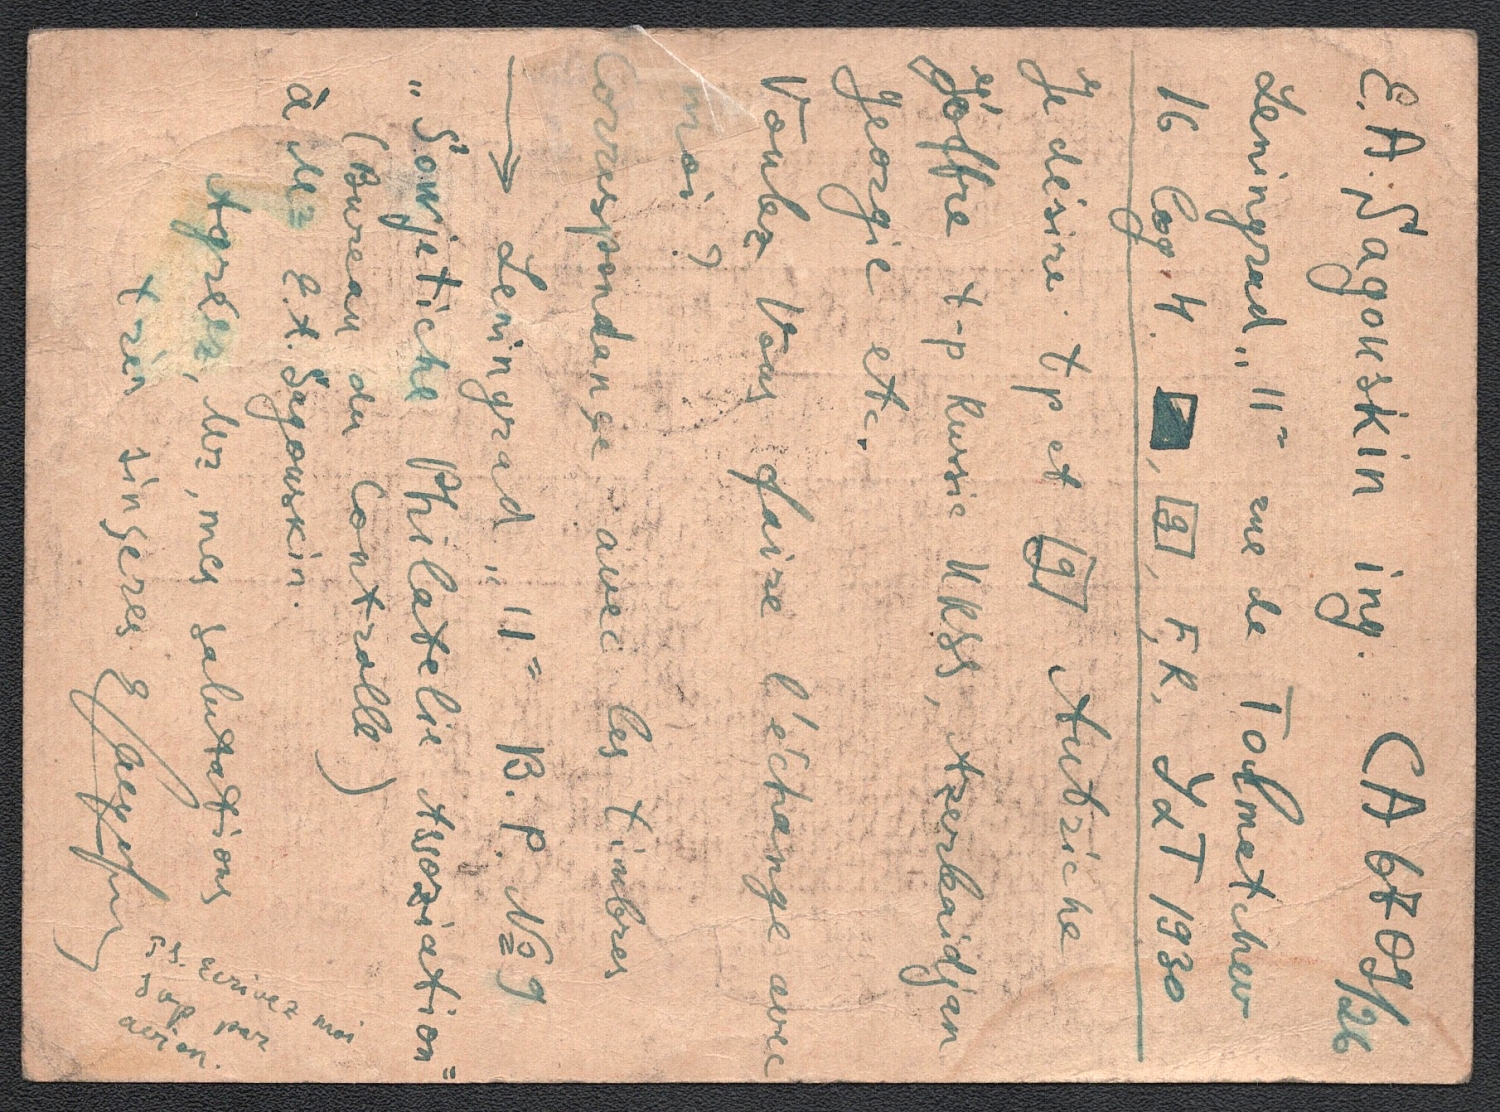 E. A. Sagowskin ing. CA 6809/26
Leningrad „11" rue de Tolmatchew
16 Log. 4. , g , F, R. YxT 1930
Je désire tp et g Autriche
et t-p Russie URSS, Azerbaidjan
Georgie etc.
Voulez Vous faire l'échange avec
moi ?
Correspondange avec les timbres
→ Leningrad „11" B. P. № 9
"Sowjetiche Philatelie Assoziation"
(Bureau du Controlle)
à Mr E. A. Sagowskin.
Agréez, Mr, mes salutations
très singeres
PS. Ecrivez moi
svp par
avion.